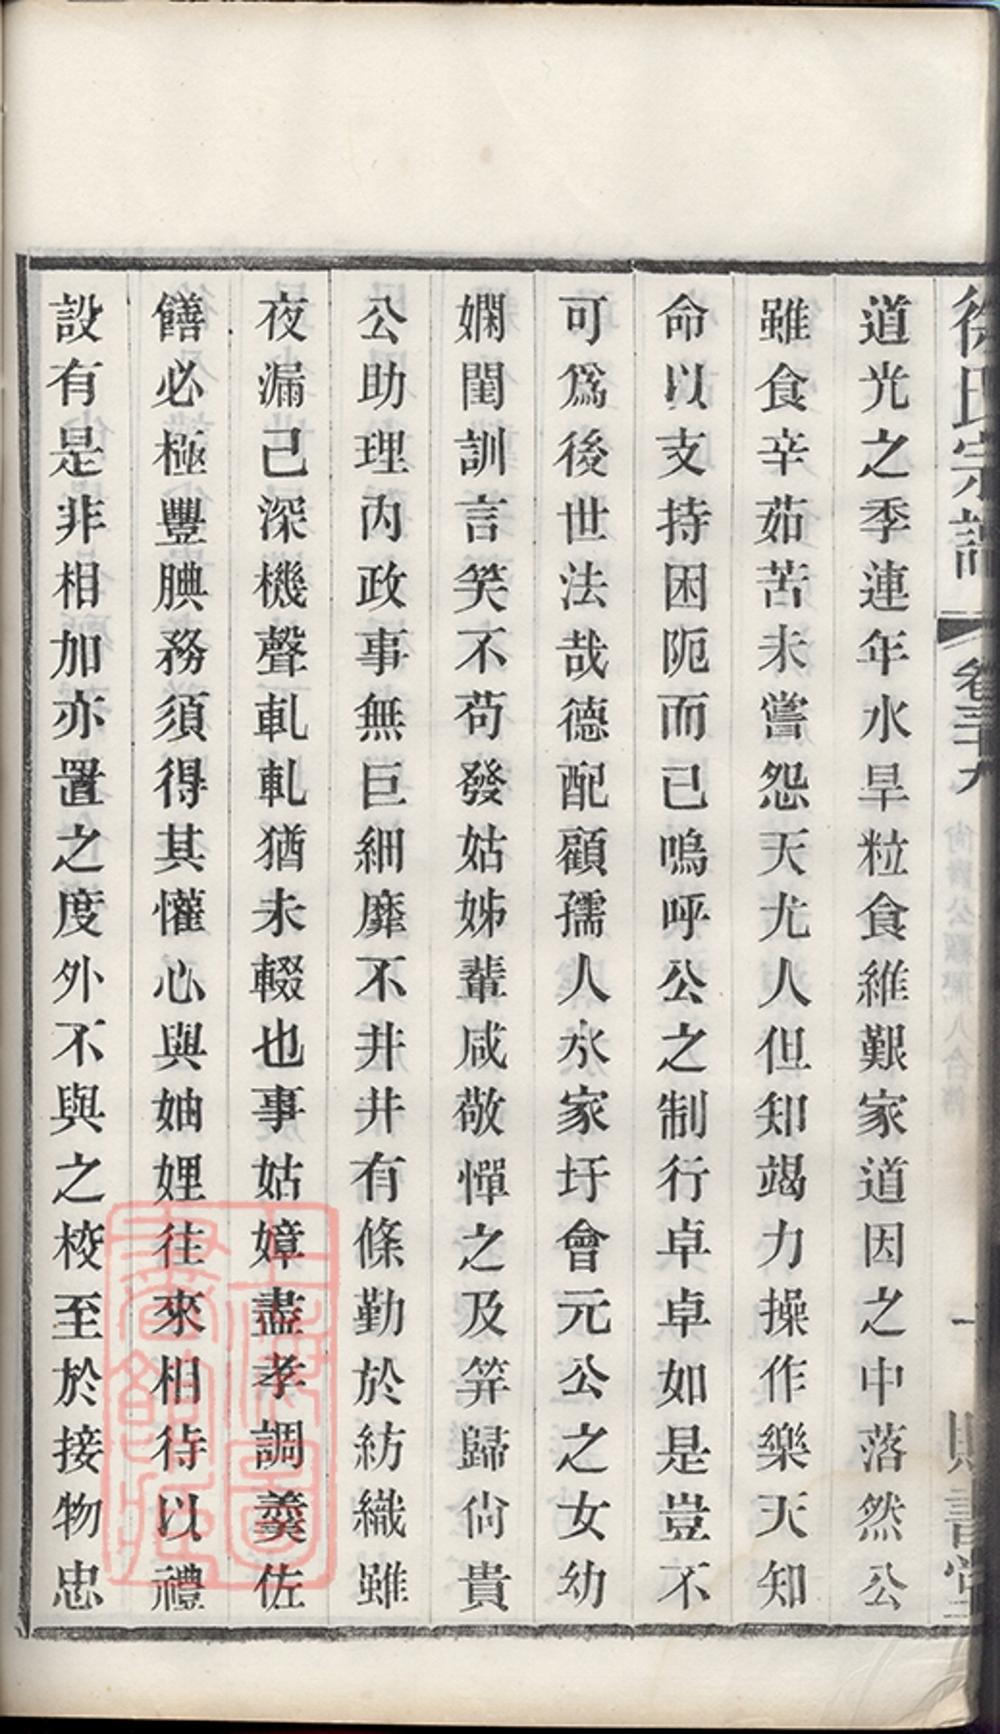 徐氏宗譜 卷三十九 尙貴公顧孺人合傳 一 賜書堂
道光之季連年水旱粒食維艱家道因之中落然公
雖食辛茹苦未嘗怨天尤人但知竭力操作樂天知
命以支持困阨而已嗚呼公之制行卓卓如是豈不
可爲後世法哉德配顧孺人氷家圩會元公之女幼
嫻閨訓言笑不苟發姑姊輩咸敬憚之及笄歸尙貴
公助理內政事無巨細靡不井井有條勤於紡織雖
夜漏己深機聲軋軋猶未輟也事姑嫜盡孝調羹佐
饍必極豐腆務須得其懽心與妯娌往來相待以禮
設有是非相加亦置之度外不與之校至於接物忠
上海圖書館藏